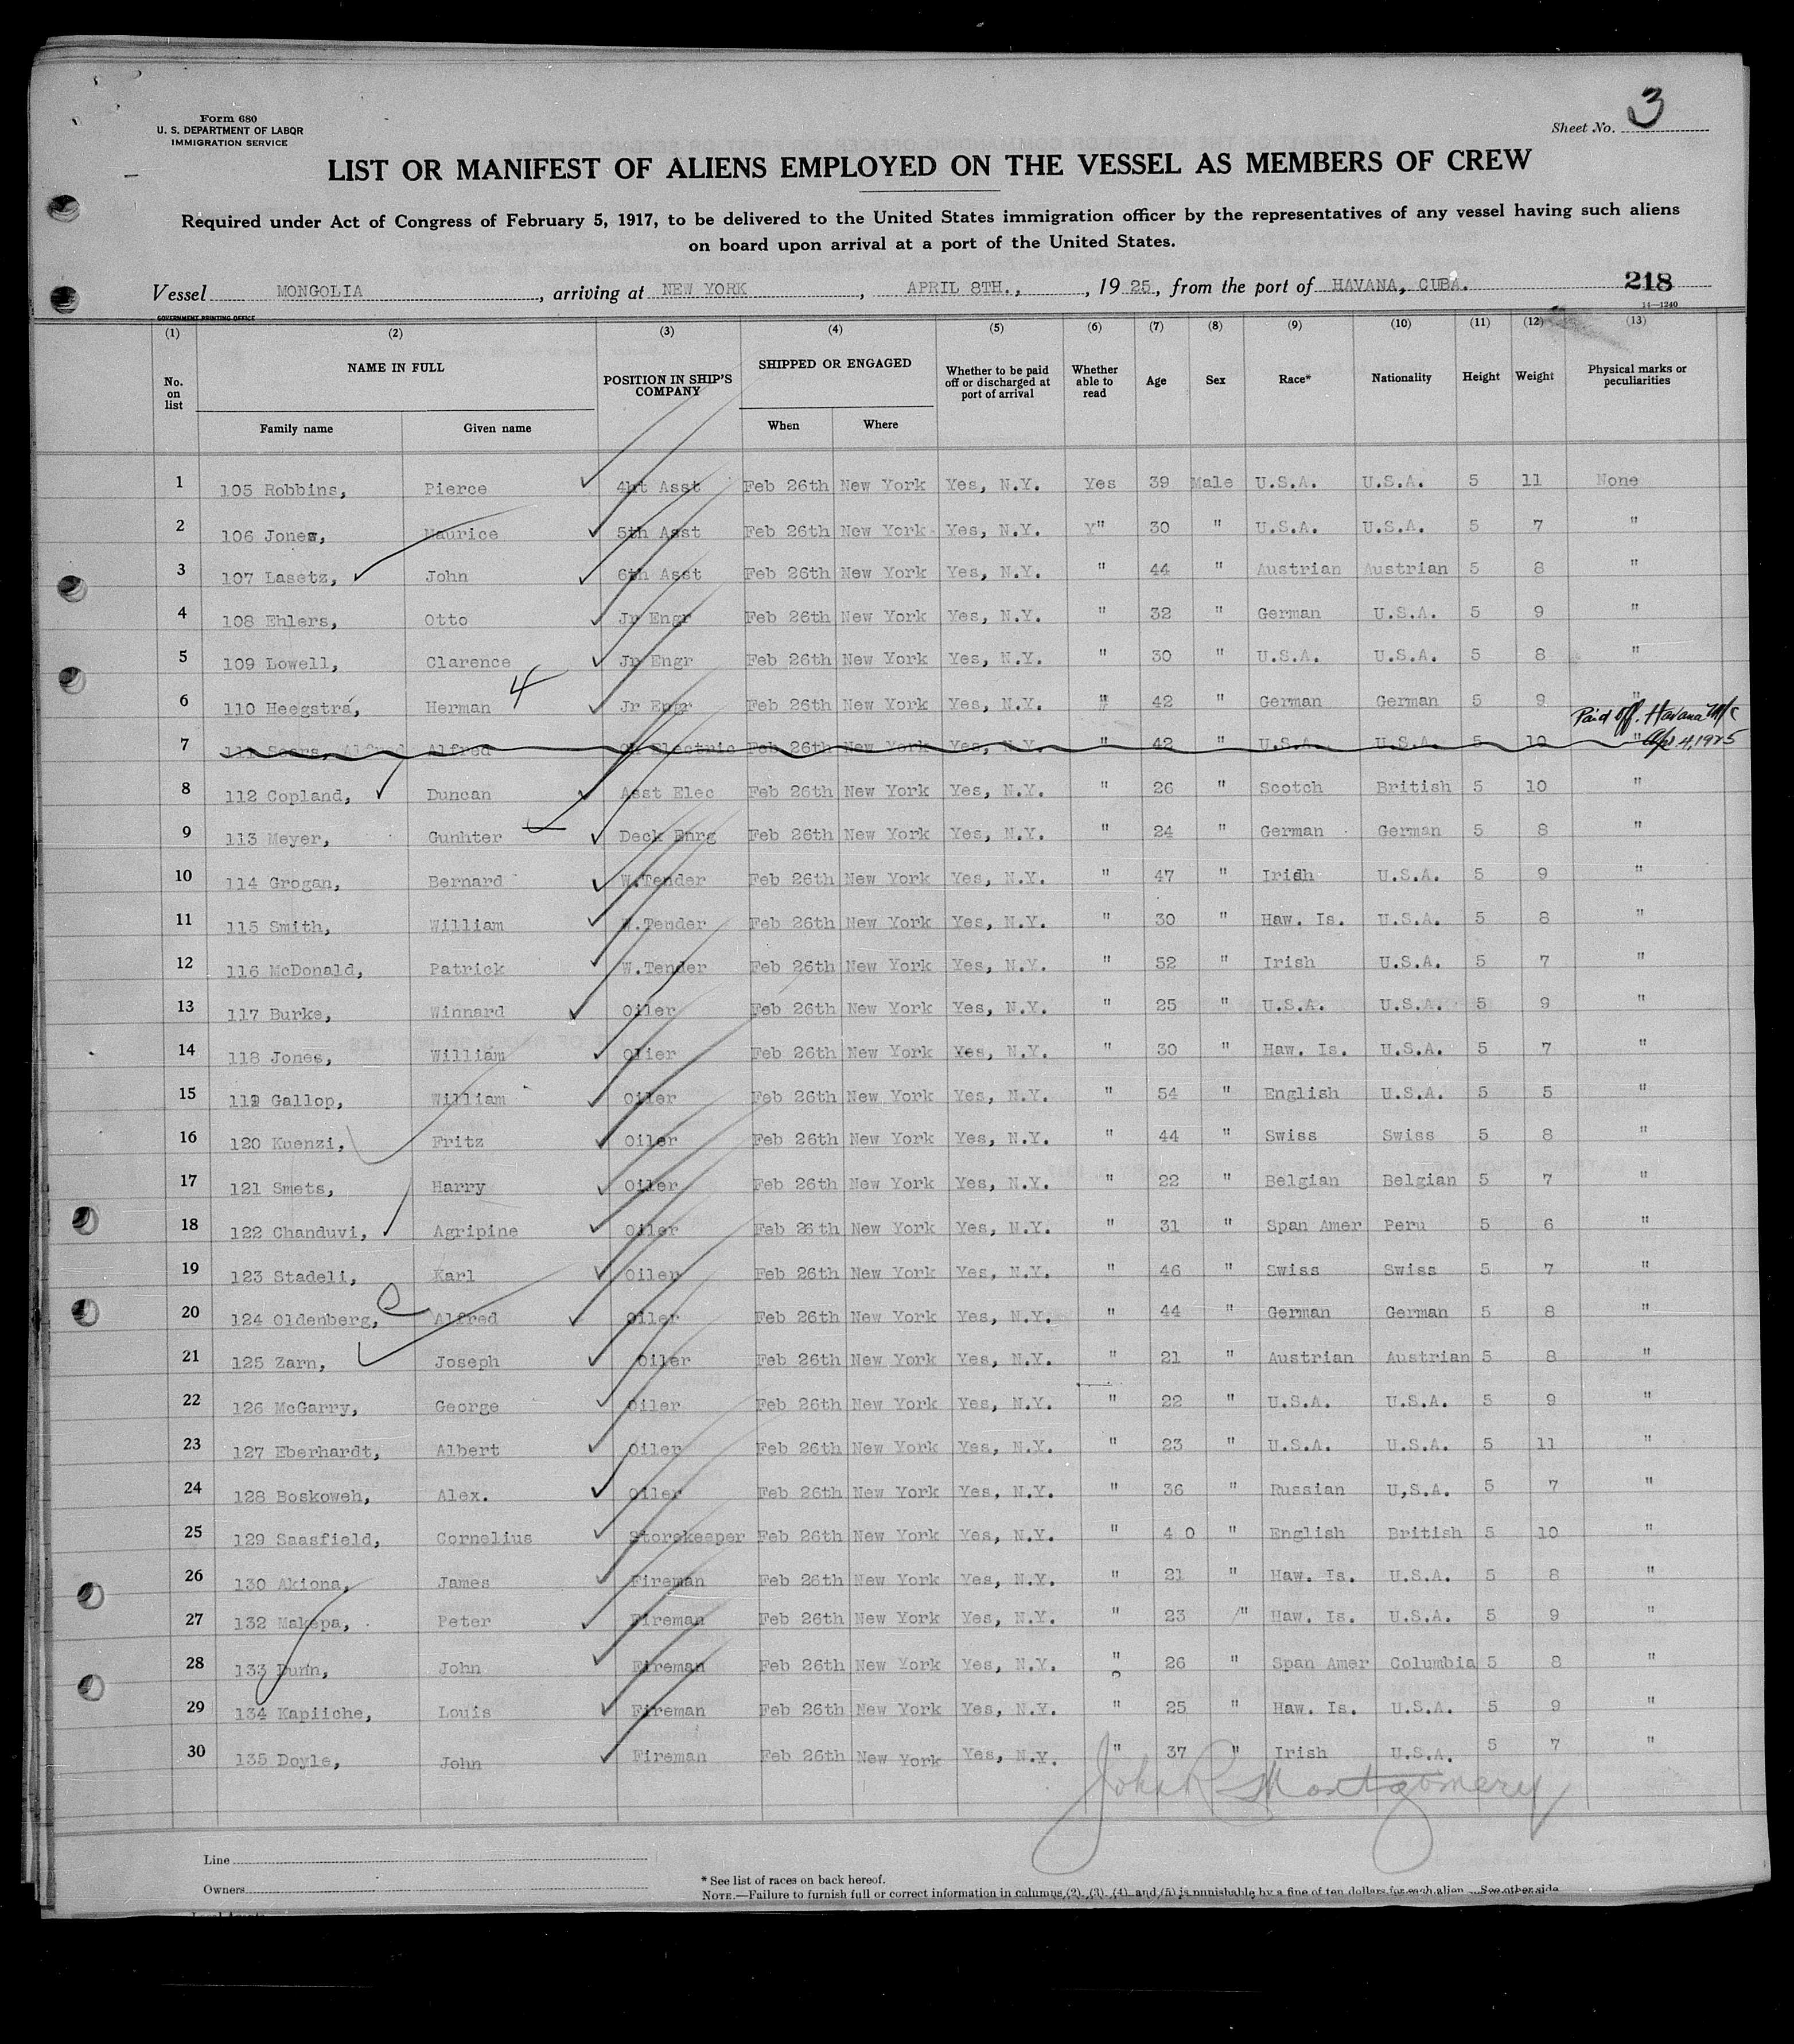 Form 680
U. S. DEPARTMENT OF LABOR
IMMIGRATION SERVICE
Sheet No. 3
LIST OR MANIFEST OF ALIENS EMPLOYED ON THE VESSEL AS MEMBERS OF CREW
Required under Act of Congress of February 5, 1917, to be delivered to the United States immigration officer by the representatives of any vessel having such aliens
on board upon arrival at a port of the United States.
Vessel MONGOLIA, arriving at NEW YORK, APRIL 8TH., , 1925, from the port of HAVANA, CUBA. 218
GOVERNMENT PRINTING OFFICE 14—1240
(1) (2) (3) (4) (5) (6) (7) (8) (9) (10) (11) (12) (13)
No. on list NAME IN FULL Family name Given name POSITION IN SHIP'S COMPANY SHIPPED OR ENGAGED When Where Whether to be paid off or discharged at port of arrival Whether able to read Age Sex Race* Nationality Height Weight Physical marks or peculiarities
1 105 Robbins, Pierce 4ht Asst Feb 26th New York Yes, N.Y. Yes 39 Male U.S.A. U.S.A. 5 11 None
2 106 Jones, Maurice 5th Asst Feb 26th New York Yes, N.Y. Y" 30 " U.S.A. U.S.A. 5 7 "
3 107 Lasetz, John 6th Asst Feb 26th New York Yes, N.Y. " 44 " Austrian Austrian 5 8 "
4 108 Ehlers, Otto Jr Engr Feb 26th New York Yes, N.Y. " 32 " German U.S.A. 5 9 "
5 109 Lowell, Clarence Jr Engr Feb 26th New York Yes, N.Y. " 30 " U.S.A. U.S.A. 5 8 "
6 110 Heegstra, Herman 4 Jr Engr Feb 26th New York Yes, N.Y. " 42 " German German 5 9 "
Paid off. Havana
7 111 Sears, Alfred Alfred Electric Feb 26th New York Yes, N.Y. " 42 " U.S.A. U.S.A. 5 10 " Apr 4, 1925
8 112 Copland, Duncan Asst Elec Feb 26th New York Yes, N.Y. " 26 " Scotch British 5 10 "
9 113 Meyer, Gunhter Deck Enrg Feb 26th New York Yes, N.Y. " 24 " German German 5 8 "
10 114 Grogan, Bernard W.Tender Feb 26th New York Yes, N.Y. " 47 " Iridh U.S.A. 5 9 "
11 115 Smith, William W.Tender Feb 26th New York Yes, N.Y. " 30 " Haw. Is. U.S.A. 5 8 "
12 116 McDonald, Patrick W.Tender Feb 26th New York Yes, N.Y. " 52 " Irish U.S.A. 5 7 "
13 117 Burke, Winnard Oiler Feb 26th New York Yes, N.Y. " 25 " U.S.A. U.S.A. 5 9 "
14 118 Jones, William Olier Feb 26th New York Yes, N.Y. " 30 " Haw. Is. U.S.A. 5 7 "
15 119 Gallop, William Oiler Feb 26th New York Yes, N.Y. " 54 " English U.S.A. 5 5 "
16 120 Kuenzi, Fritz Oiler Feb 26th New York Yes, N.Y. " 44 " Swiss Swiss 5 8 "
17 121 Smets, Harry Oiler Feb 26th New York Yes, N.Y. " 22 " Belgian Belgian 5 7 "
18 122 Chanduvi, Agripine Oiler Feb 26th New York Yes, N.Y. " 31 " Span Amer Peru 5 6 "
19 123 Stadeli, Karl Oiler Feb 26th New York Yes, N.Y. " 46 " Swiss Swiss 5 7 "
20 124 Oldenberg, Alfred Oiler Feb 26th New York Yes, N.Y. " 44 " German German 5 8 "
21 125 Zarn, Joseph Oiler Feb 26th New York Yes, N.Y. " 21 " Austrian Austrian 5 8 "
22 126 McGarry, George Oiler Feb 26th New York Yes, N.Y. " 22 " U.S.A. U.S.A. 5 9 "
23 127 Eberhardt, Albert Oiler Feb 26th New York Yes, N.Y. " 23 " U.S.A. U.S.A. 5 11 "
24 128 Boskoweh, Alex. Oiler Feb 26th New York Yes, N.Y. " 36 " Russian U,S.A. 5 7 "
25 129 Saasfield, Cornelius Storekeeper Feb 26th New York Yes, N.Y. " 4 0 " English British 5 10 "
26 130 Akiona, James Fireman Feb 26th New York Yes, N.Y. " 21 " Haw. Is. U.S.A. 5 8 "
27 132 Makepa, Peter Fireman Feb 26th New York Yes, N.Y. " 23 " Haw. Is. U.S.A. 5 9 "
28 133 Dunn, John Fireman Feb 26th New York Yes, N.Y. " 26 " Span Amer Columbia 5 8 "
29 134 Kapiiche, Louis Fireman Feb 26th New York Yes, N.Y. " 25 " Haw. Is. U.S.A. 5 9 "
30 135 Doyle, John Fireman Feb 26th New York Yes, N.Y. " 37 " Irish U.S.A. 5 7 "
John R Montgomery
Line
Owners
* See list of races on back hereof.
NOTE.—Failure to furnish full or correct information in columns (2), (3), (4) and (5) is punishable by a fine of ten dollars for each alien. See other side